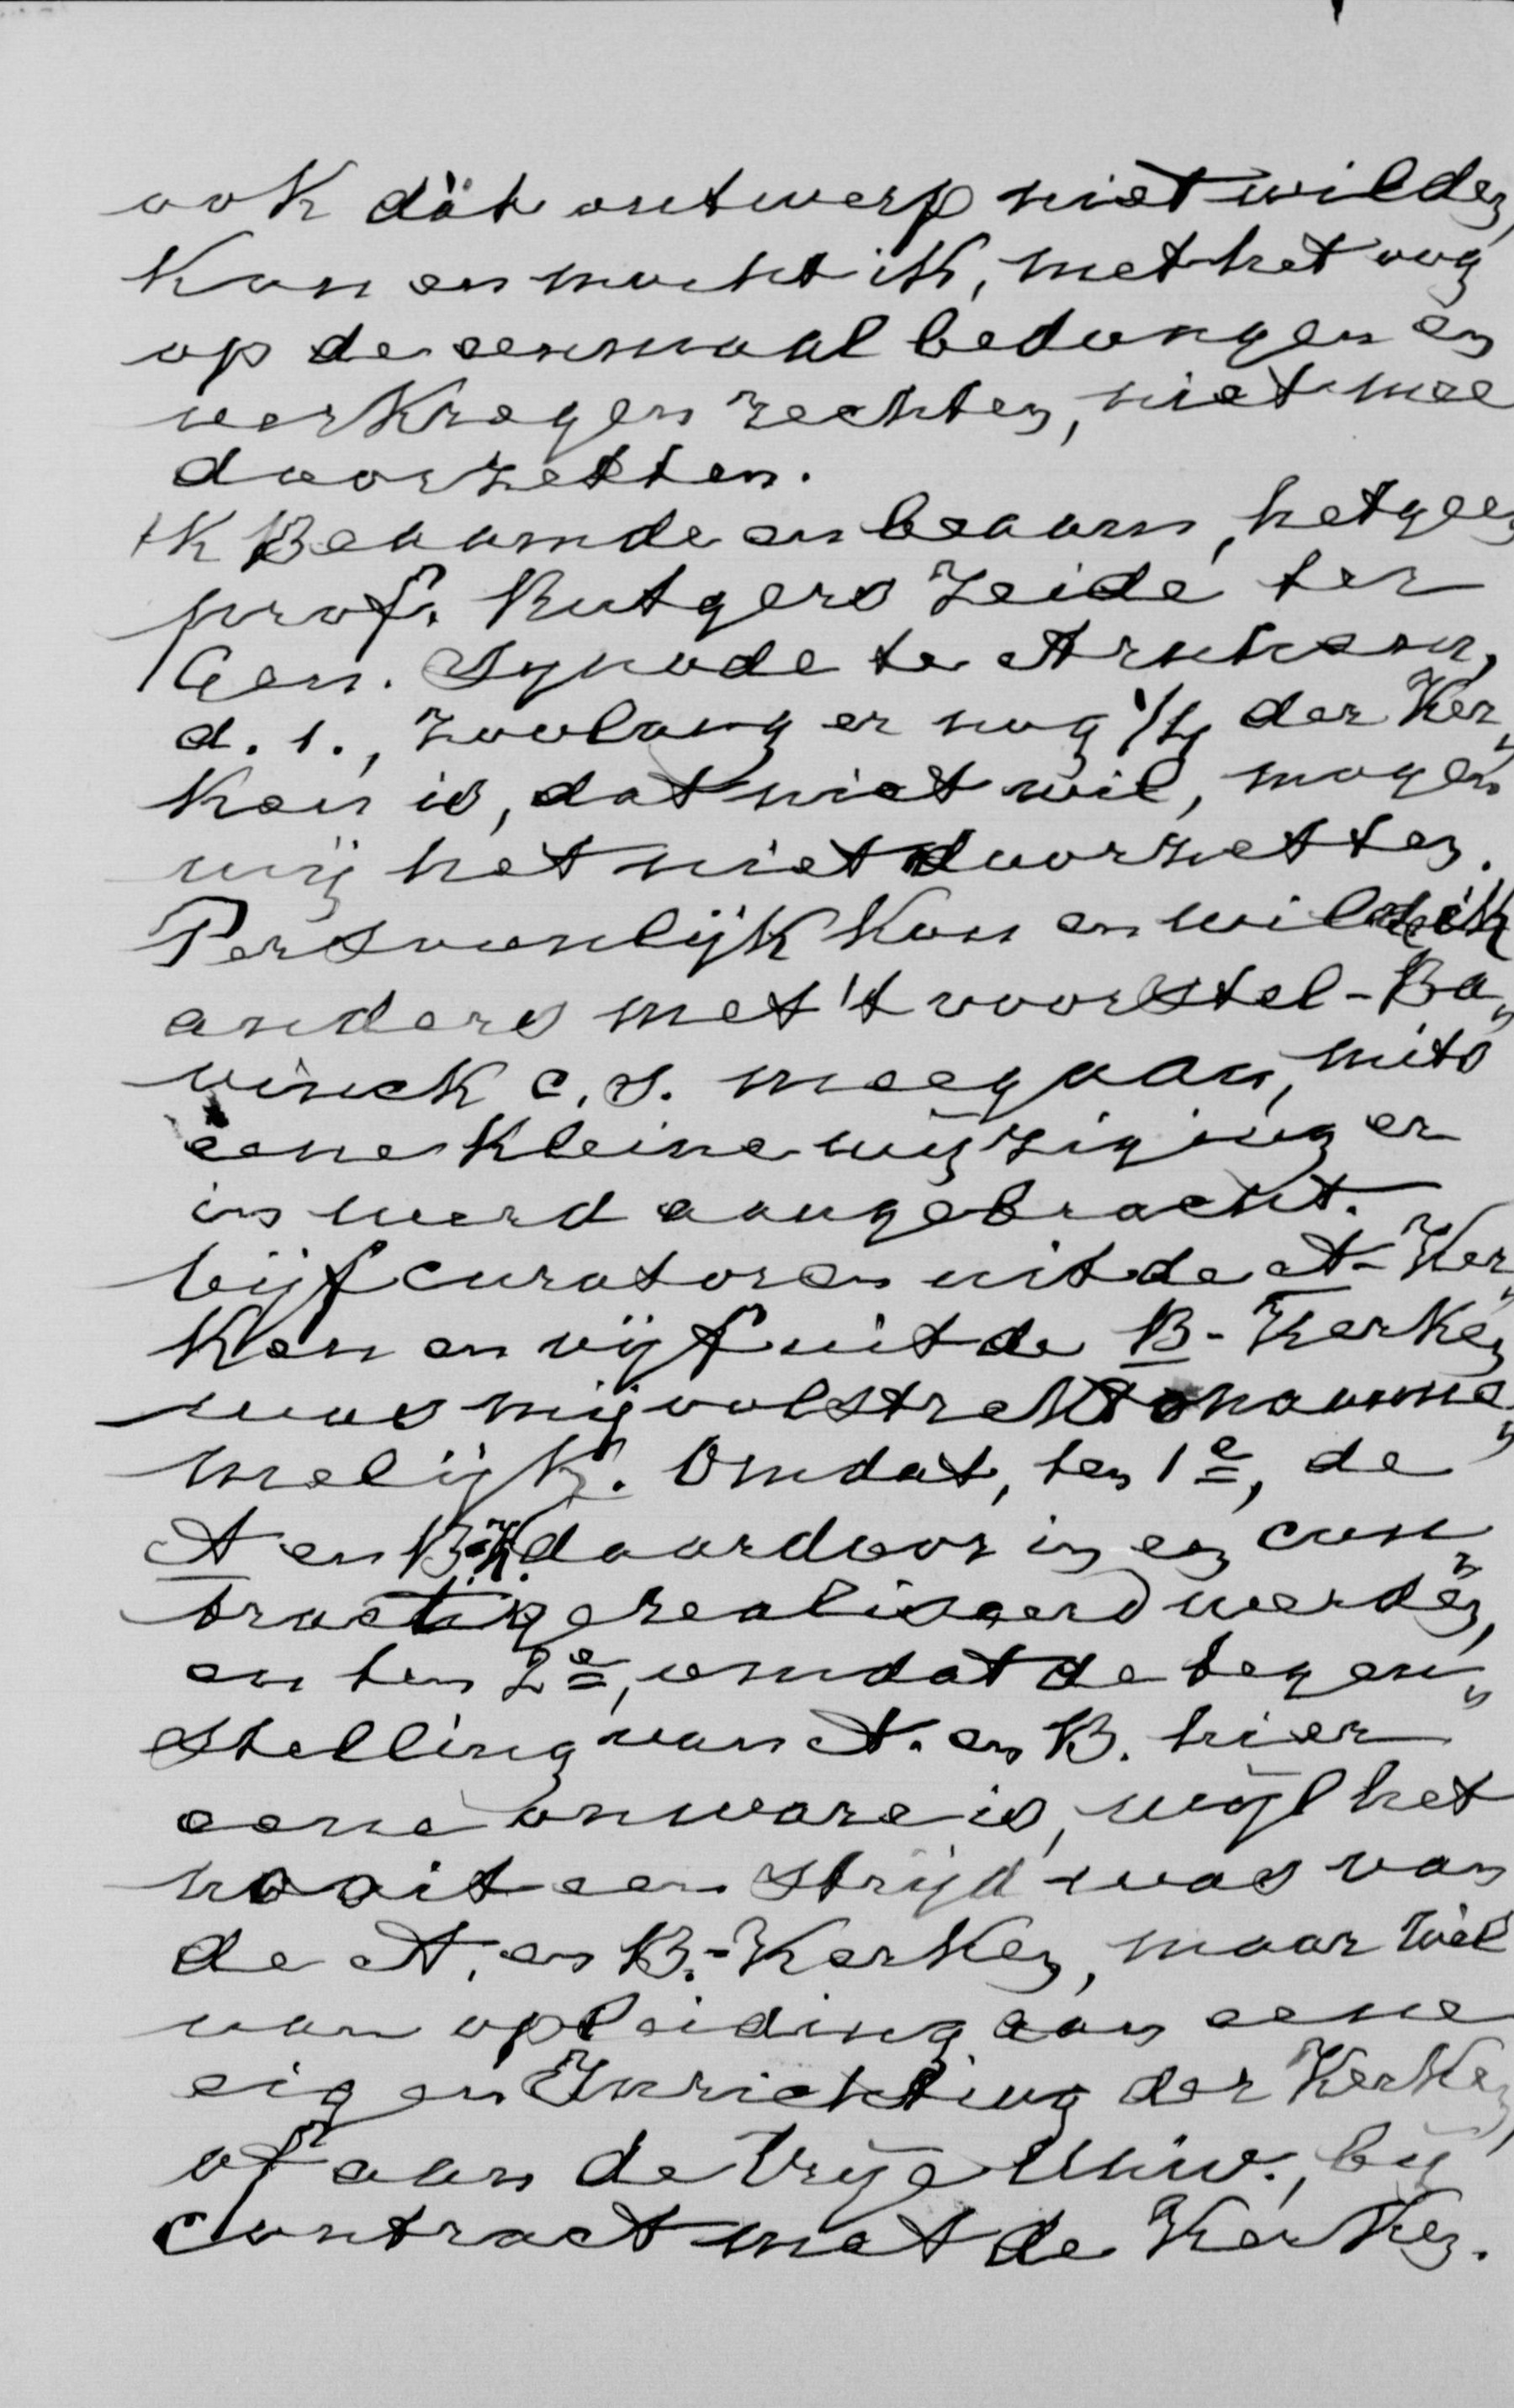 ook dàt ontwerp niet wilden,
kon en mocht ik, met het oog
op de eenmaal bedongen en
verkregen rechten, niet mee
doorzetten.
Ik Beaamde en beaam, hetgeen
prof. Rutgers zeide ter
Gen. Synode te Arnhem,
d. i., zoolang er nog 1/4 der Ker„
ken is, dat niet wil, mogen
wij het niet doorzetten.
Persoonlijk kon en wilde ik
anders met 't voorstel-Ba„
vinck c. s. meegaan, mits
eene kleine wijziging er
in werd aangebracht.
Vijf curatoren uit de A-Ker„
ken en vijf uit de B-Kerken
was mij volstrekt onaanne„
melijk. Omdat, ten 1e, de
A en B.K. daardoor in een con„
tract gerealiseerd werden,
en ten 2e, omdat de tegen„
stelling van A. en B. hier
eene onware is, wijl het
nooit een strijd was van
de A. en B.-Kerken, maar wèl
van opleiding aan eene
eigen Inrichting der Kerken,
of aan de Vrije Univ., bij
contract met de Kerken.